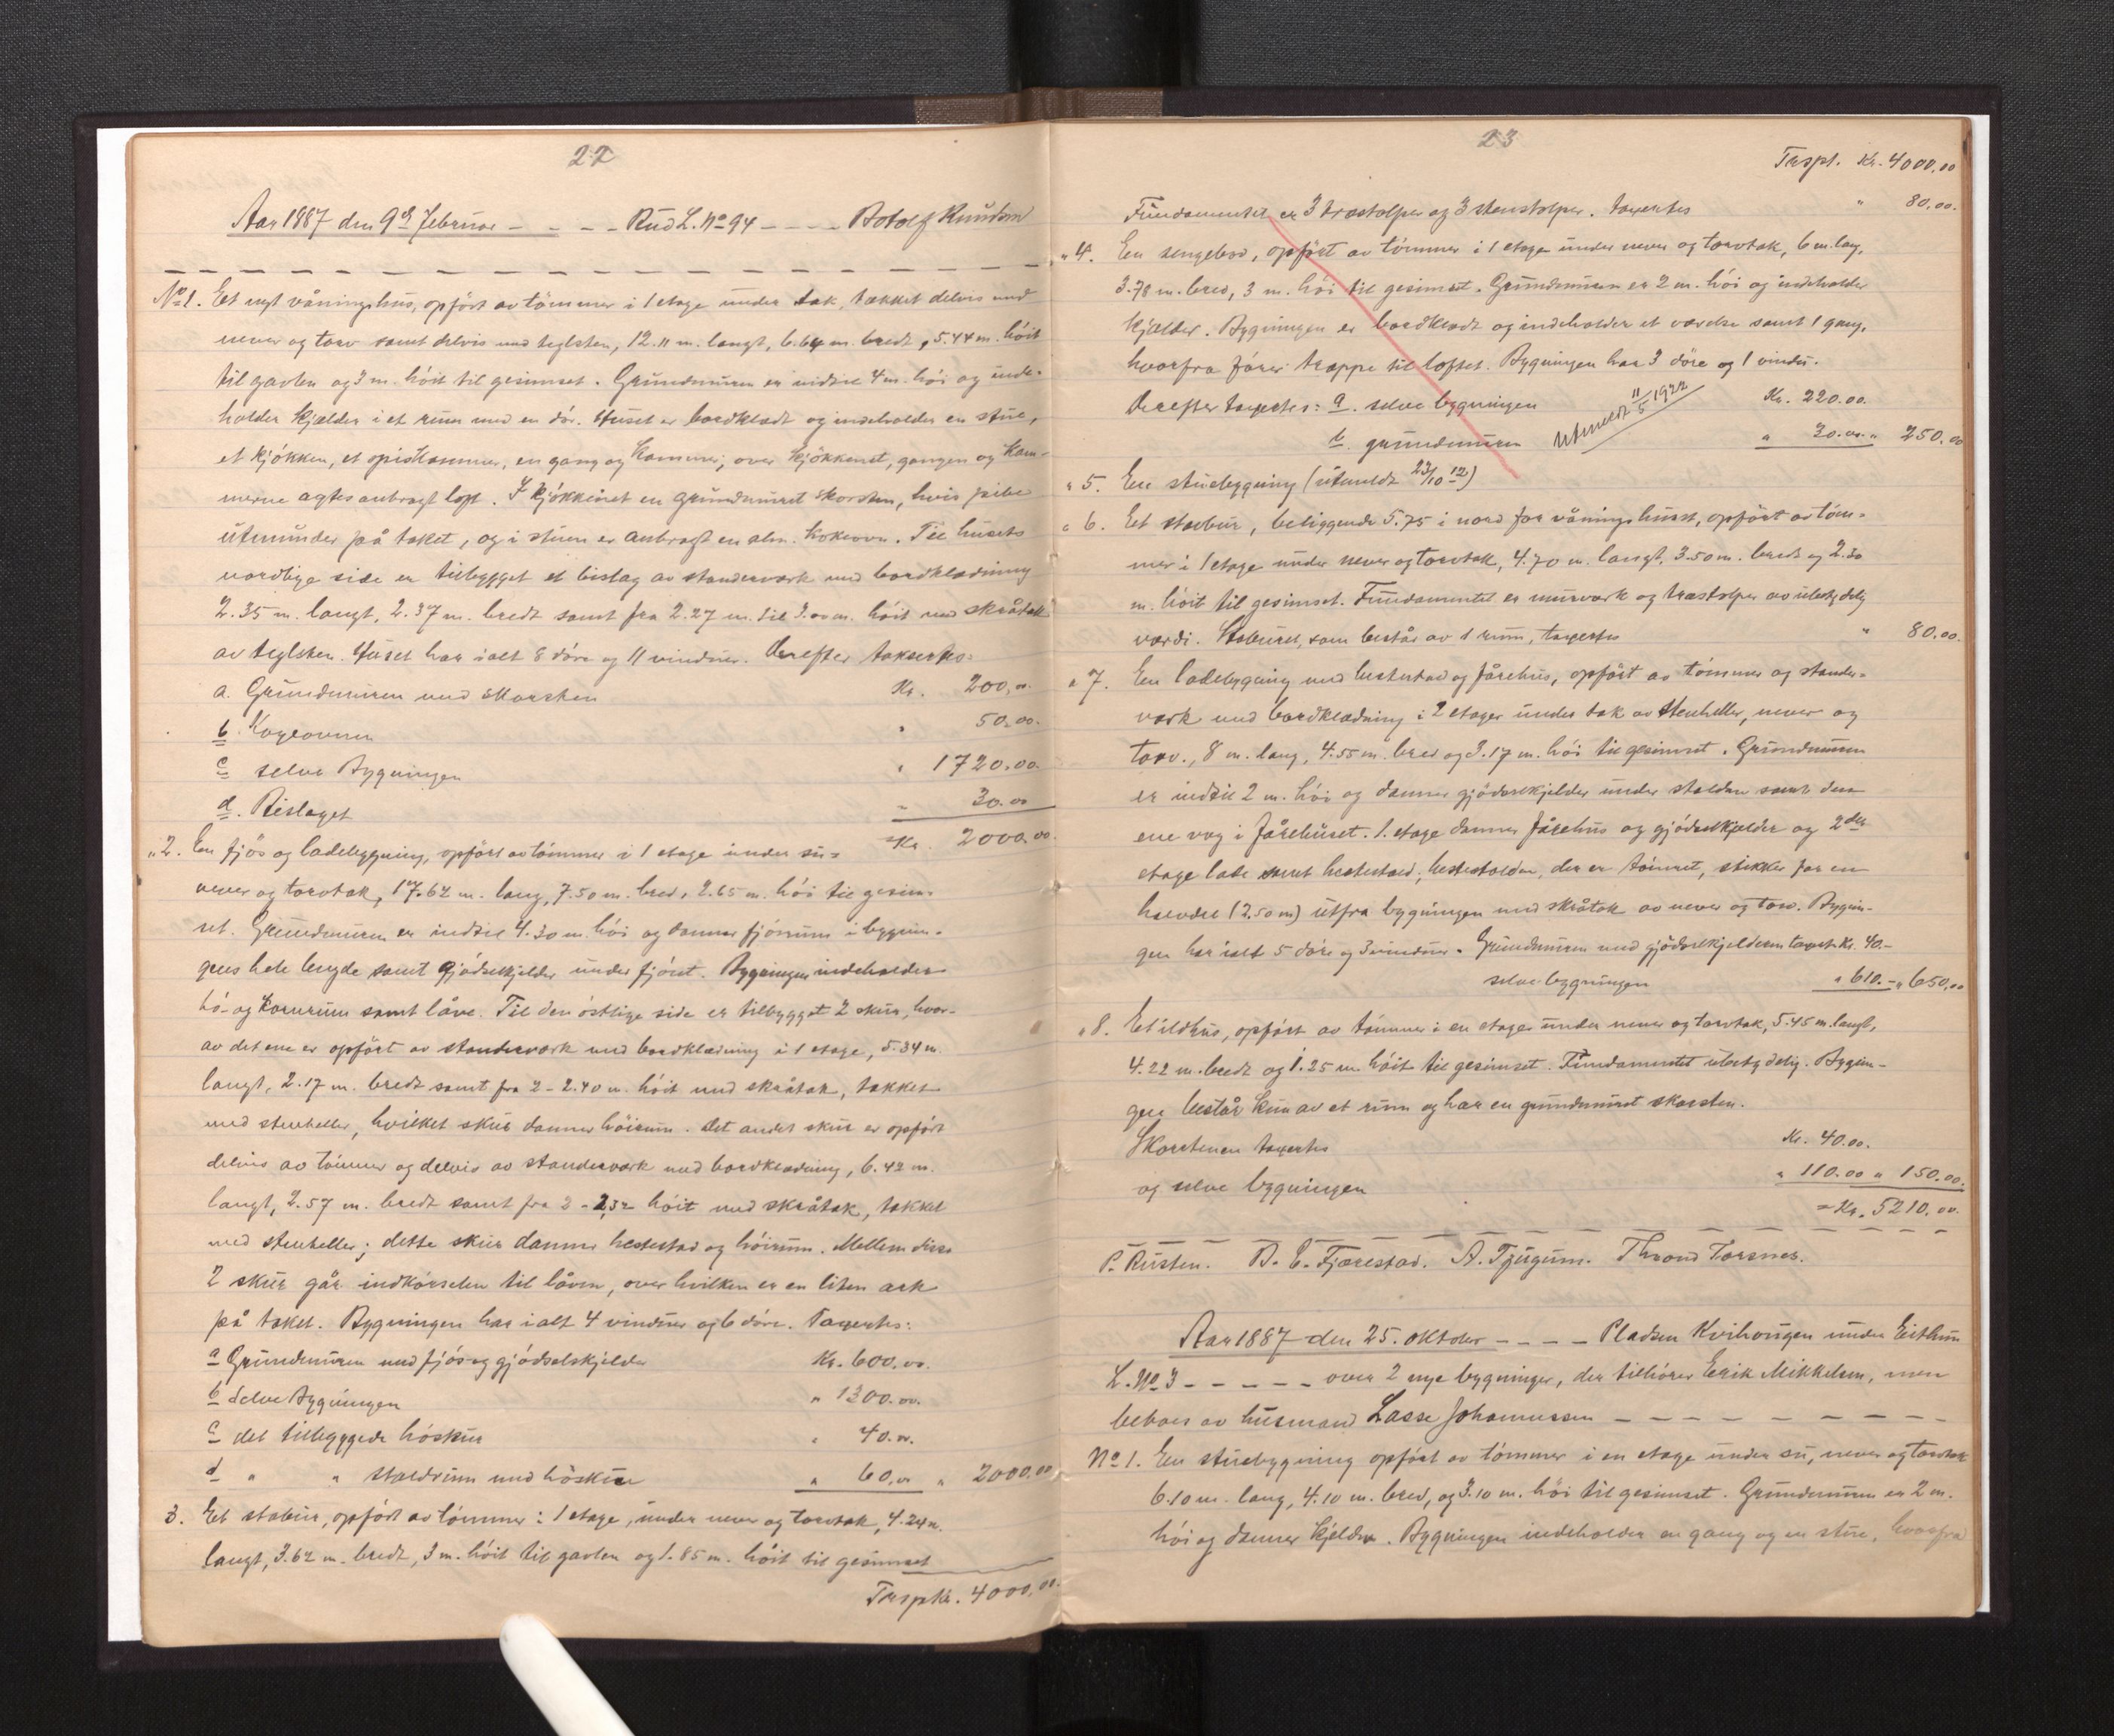 22
Aar 1887 den 9de Februar - - - - Rud L. No 94 - - - - Botolf Knudsen
No 1. Et nyt våningshus, opført av tömmer i 1 etage under tak, tækket delvis med
never og torv samt delvis med teglsten, 12.11 m. langt, 6.64 m. bredt, 5.44 m. höit
til gavlen og 3 m. höit til gesimset. Grundmuren er indtil 4 m. höi og inde-
holder kjælder i et rum med en dör. Huset er bordklædt og indeholder en stue,
et kjökken, et spiskammer, en gang og kammer; over kjökkenet, gangen og kam-
merne agtes anbragt loft. I kjökkenet en grundmuret skorsten, hvis pibe
utmunder på taket, og i stuen er anbragt en alm. kokeovn. Til husets
nordlige side er tilbygget et bislag av standerværk med bordklædning
2.35 m. langt, 2.37 m. bredt samt fra 2.27 m. til 3.00 m. höit med skråtak
av teglsten. Huset har ialt 8 döre og 11 vinduer. Derefter takseres:
a. Grundmuren med skorsten Kr. 200,00.
b Kogeovnen " 50.00.
c selve Bygningen " 1720.00.
d. Bislaget " 30.00
" 2. En fjös og ladebygning, opført av tömmer i 1 etage under su- Kr. 2000.00.
never og torvtak, 17.62 m. lang, 7.50 m. bred, 2.65 m. höi til gesim-
set. Grundmuren er indtil 4.30 m. höi og danner fjösrum i bygnin-
gens hele lengde samt gjödselkjelder under fjöset. Bygningen indeholder
hö- og kornrum samt låve. Til den östlige side er tilbygget 2 skur, hvor-
av det ene er opført av standerværk med bordklædning i 1 etage, 5.34 m.
langt, 2.17 m. bredt samt fra 2 - 2.40 m. höit med skråtak, tækket
med stenheller, hvilket skur danner höirum. Det andet skur er opført
delvis av tömmer og delvis av standerværk med bordklædning, 6.42 m.
langt, 2.57 m. bredt samt fra 2 - 2,52 höit med skråtak, tækket
med stenheller; dette skur danner hestestad og höirum. Mellem disse
2 skur går indkörselen til låven, over hvilken er en liten ark
på taket. Bygningen har ialt 4 vinduer og 6 döre. Taxertes:
a Grundmuren med fjös og gjödselskjelder Kr. 600.00.
b Selve Bygningen " 1300.00.
c det tilbyggede höskur " 40.00.
d " " staldrum med höskur " 60.00 " 2000.00
3. Et stabur, opført av tömmer i 1 etage, under never og torvtak, 4.24 m.
langt, 3.62 m. bredt, 3 m. höit til gavlen og 1.85 m. höit til gesimset
Trsp Kr. 4000.00.
23
Trspt. Kr. 4000.00
Fundamentet er 3 træstolper og 3 stenstolper. taxertes " 80.00.
" 4. En sengebod, opført av tömmer i 1 etage under never og torvtak, 6 m. lang,
3.78 m. bred, 3 m. höi til gesimset. Grundmuren er 2 m. höi og indeholder
kjælder. Bygningen er bordklædt og indeholder et værelse samt 1 gang,
hvorfra förer trappe til loftet. Bygningen har 3 döre og 1 vindu.
Derefter taxertes: a. selve bygningen Kr. 220.00.
b. grundmuren " 30.00. " 250.00
Utmeldt 11/5 1922
" 5. En stuebygning (utmeldt 23/10 12)
" 6. Et stabur, beliggende 5.75 i nord for våningshuset, opført av töm-
mer i 1 etage under never og torvtak, 4.70 m. langt, 3.50 m. bredt og 2.30
m. höit til gesimset. Fundamentet er murværk og træstolper av ubetydelig
værdi. Staburet, som består av 1 rum, taxertes " 80.00.
" 7. En ladebygning med hestestad og fårehus, opført av tömmer og stander-
værk med bordklædning i 2 etager under tak av stenheller, never og
torv., 8 m. lang, 4.55 m. bred og 3.17 m. höi til gesimset. Grundmuren
er indtil 2 m. höi og danner gjödselkjelder under stalden samt den
ene væg i fårehuset. 1. etage danner fårehus og gjödselkjelder og 2den
etage lade samt hestestald; hestestalden, der er tömret, stikker for en
halvdel (2.50 m) utfra bygningen med skråtak av never og torv. Bygnin-
gen har ialt 5 döre og 3 vinduer. Grundmuren med gjödselkjelderen taxert Kr. 40.-
selve bygningen " 610.- " 650.00
" 8. Et ildhus, opført av tömmer i en etage under never og torvtak, 5.45 m. langt,
4.22 m. bredt og 1.25 m. höit til gesimset. Fundamentet ubetydelig. Bygnin-
gen består kun av et rum og har en grundmuret skorsten.
Skorstenen taxertes Kr. 40.00.
og selve bygningen " 110.00 " 150.00.
= Kr. 5210.00.
P. Rusten. B. E. Fjærestad. A. Tjugum. Thrond Torsnes.
Aar 1887 den 25. oktober - - - - Pladsen Kvihougen under Eithun
L. No 3 - - - - - over 2 nye bygninger, der tilhörer Erik Mikkelsen, men
beboes av husmand Lasse Johannessen - - - - - - - - -
No 1. En stuebygning opført av tömmer i en etage under su, never og torvtak
6.10 m. lang, 4.10 m. bred, og 3.10 m. höi til gesimset. Grundmuren er 2 m.
höi og danner kjelder. Bygningen indeholder en gang og en stue, hvorfra